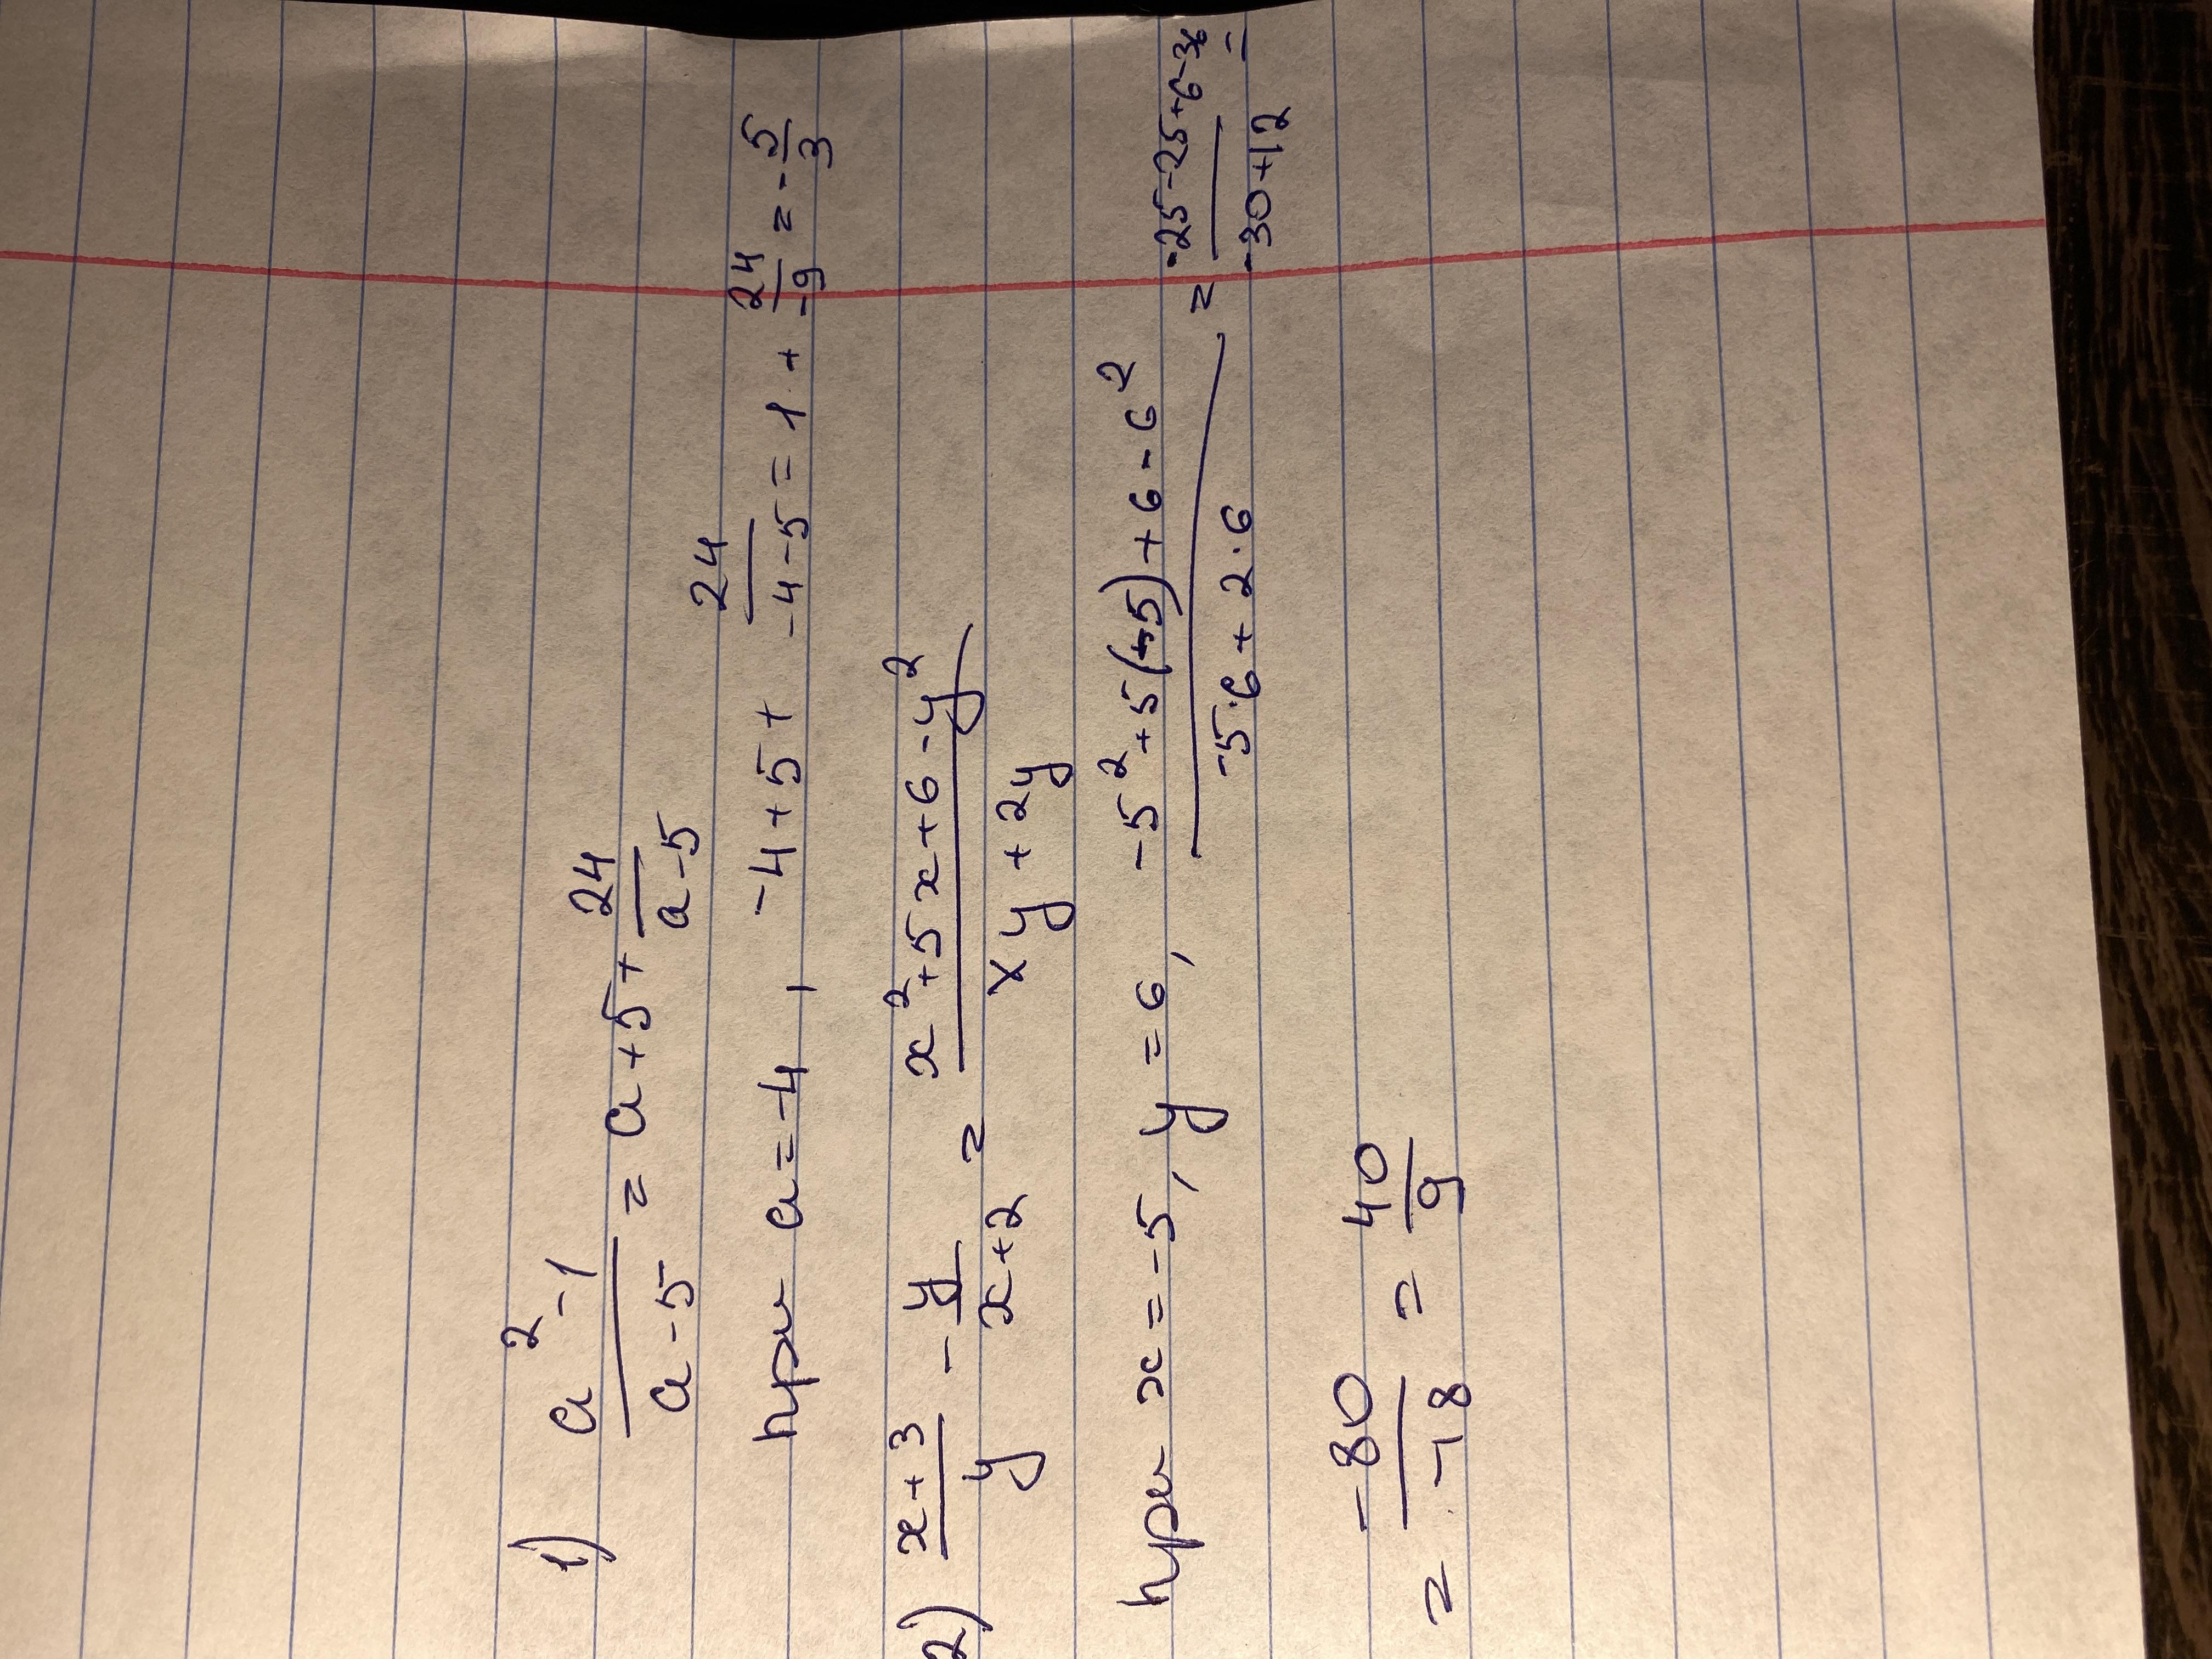 1) (a² - 1)/(a - 5) = a + 5 + 24/(a - 5)
при a = -4, -4 + 5 + 24/(-4 - 5) = 1 + 24/(-9) = -5/3
2) (x + 3)/y - y/(x + 2) = (x² + 5x + 6 - y²)/(xy + 2y)
при x = -5, y = 6, (-5² + 5(-5) + 6 - 6²)/(-5·6 + 2·6) = (-25 - 25 + 6 - 36)/(-30 + 12) =
= (-80)/(-18) = 40/9